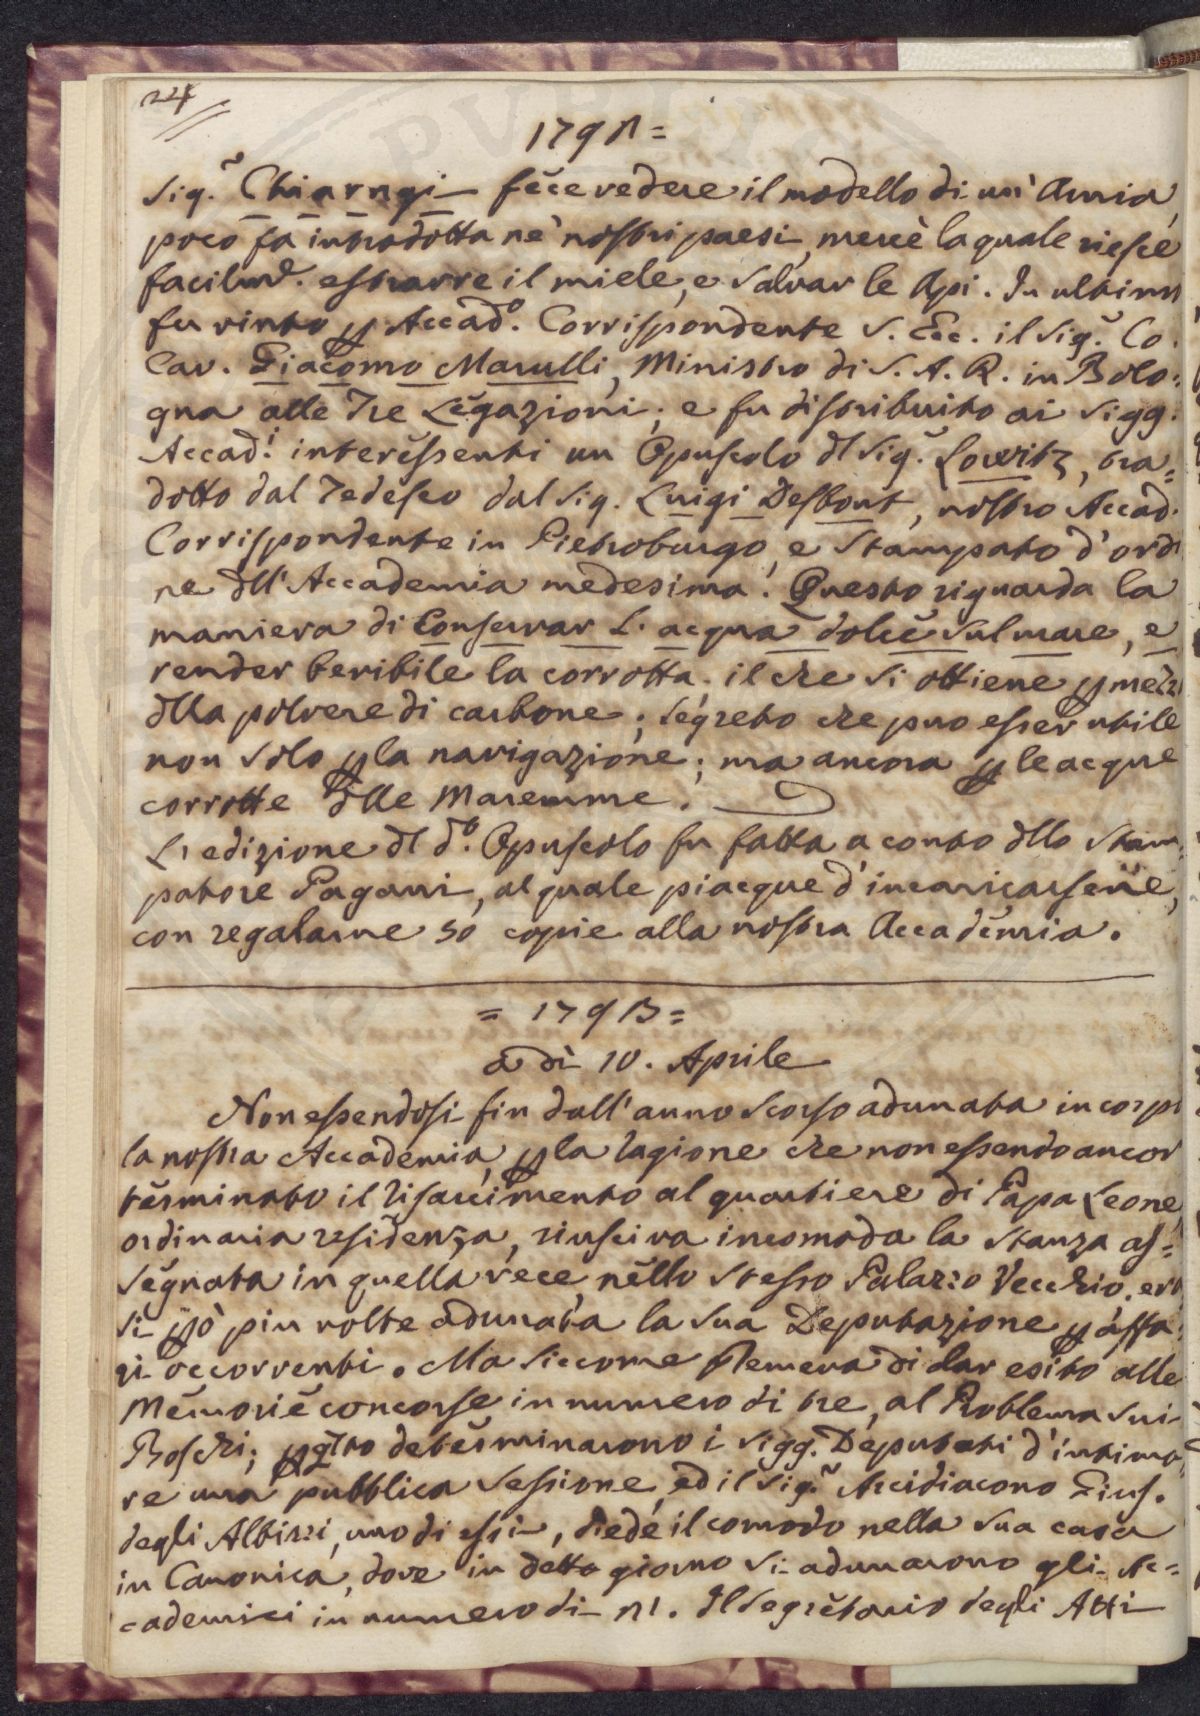 24
179Л=
Sig.r Chiarugi fece vedere il modello di un' Arnia,
poco fa introdotta ne' nostri paesi, mercè la quale riesce
facilm.e estrarre il miele, e salvar le Api. In ultimo
fu vinto p Accad.o Corrispondente S. Ecc. il Sig.r Co.
Cav. Giacomo Marulli, Ministro di S. A. R. in Bolo=
gna alle Tre Legazioni; e fu distribuito ai Sigg.
Accad.i interessenti un Opuscolo dl Sig.r Lowitz, tra=
dotto dal Tedesco dal Sig. Luigi Desbout, nostro Accad.
Corrispondente in Pietroburgo, e stampato d'ordi
ne dll'Accademia medesima. Questo riguarda la
maniera di Conservar L'acqua dolce sul mare, e
render beribile la corrotta; il che si ottiene p mezzo
dlla polvere di carbone; segreto che puo esser utile
non solo p la navigazione; ma ancora p le acque
corrotte dlle Maremme.
L'edizione dl d.o Opuscolo fu fatta a conto dllo Stam=
patore Pagani, al quale piacque d'incaricarsene,
con regalarne 50 copie alla nostra Accademia.
= 179B=
a dì 10. Aprile
Non essendosi fin dall'anno scorso adunata in corpo
la nostra Accademia, p la ragione che non essendo ancor
terminato il risarcimento al quartiere di Papa Leone,
ordinaria residenza, riusciva incomoda la stanza as=
segnata in quella vece, nello stesso Palazzo Vecchio, era
si pò piu volte adunata la sua Deputazione p affa=
ri occorrenti. Ma siccome premeva di dar esito alle
Memorie concorse in numero di tre, al Problema sui
Boschi; p qto determinarono i Sigg. Deputati d'intima=
re una pubblica Sessione, ed il Sig.r Arcidiacono Gius.
degli Albizzi, uno di essi, diede il comodo nella sua casa
in Canonica, dove in detto giorno si adunarono gli Ac=
cademici in numero di 21. Il Segretario degli Atti